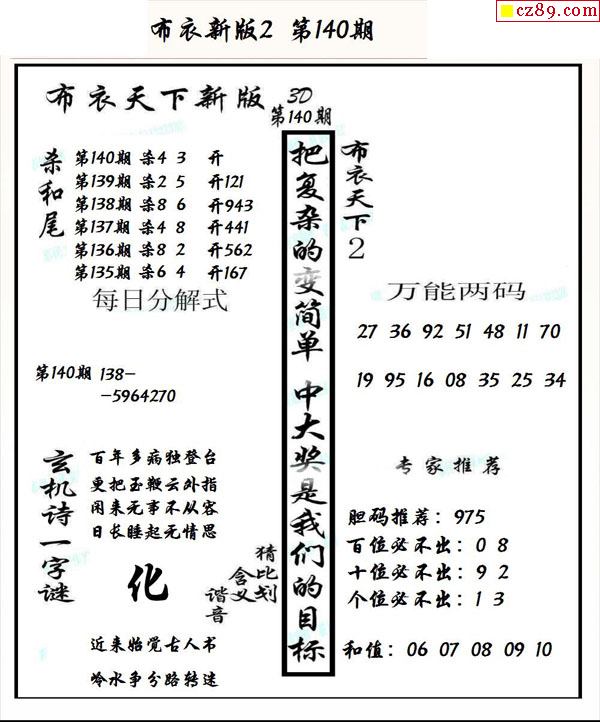 cz89.com
布衣新版2 第140期
布衣天下新版 3D
第140期
杀和尾
第140期 杀4 3 开
第139期 杀2 5 开121
第138期 杀8 6 开943
第137期 杀4 8 开441
第136期 杀8 2 开562
第135期 杀6 4 开167
每日分解式
第140期 138-
-5964270
玄机诗一字谜
百年多病独登台
更把玉鞭云外指
闲来无事不从容
日长睡起无情思
化
猜比划
含义
谐音
近来始觉古人书
冷水争分路转迷
把复杂的变简单 中大奖是我们的目标
布衣天下2
万能两码
27 36 92 51 48 11 70
19 95 16 08 35 25 34
专家推荐
胆码推荐：975
百位必不出：0 8
十位必不出：9 2
个位必不出：1 3
和值：06 07 08 09 10